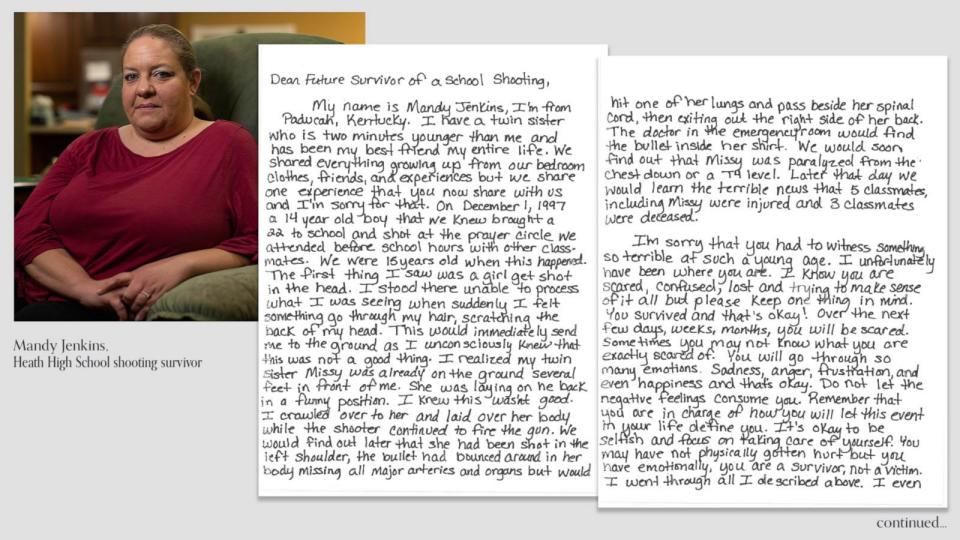 Mandy Jenkins,
Heath High School shooting survivor
Dear Future Survivor of a School Shooting,
My name is Mandy Jenkins, I'm from
Paducah, Kentucky. I have a twin sister
who is two minutes younger than me and
has been my best friend my entire life. We
shared everything growing up from our bedroom
clothes, friends, and experiences but we share
one experience that you now share with us
and I'm sorry for that. On December 1, 1997
a 14 year old boy that we knew brought a
22 to school and shot at the prayer circle we
attended before school hours with other class-
mates. We were 15 years old when this happened.
The first thing I saw was a girl get shot
in the head. I stood there unable to process
what I was seeing when suddenly I felt
something go through my hair, scratching the
back of my head. This would immediately send
me to the ground as I unconsciously knew that
this was not a good thing. I realized my twin
sister Missy was already on the ground several
feet in front of me. She was laying on he back
in a funny position. I knew this wasnt good.
I crawled over to her and laid over her body
while the shooter continued to fire the gun. We
would find out later that she had been shot in the
left shoulder, the bullet had bounced around in her
body missing all major arteries and organs but would
hit one of her lungs and pass beside her spinal
cord, then exiting out the right side of her back.
The doctor in the emergency room would find
the bullet inside her shirt. We would soon
find out that Missy was paralyzed from the
chest down or a T4 level. Later that day we
would learn the terrible news that 5 classmates,
including Missy were injured and 3 classmates
were deceased.
I'm sorry that you had to witness something
so terrible at such a young age. I unfortunately
have been where you are. I know you are
scared, confused, lost and trying to make sense
of it all but please keep one thing in mind.
You survived and that's okay! Over the next
few days, weeks, months, you will be scared.
Sometimes you may not know what you are
exactly scared of. You will go through so
many emotions. Sadness, anger, frustration, and
even happiness and thats okay. Do not let the
negative feelings consume you. Remember that
you are in charge of how you will let this event
in your life define you. It's okay to be
selfish and focus on taking care of yourself. You
may have not physically gotten hurt but you
have emotionally, you are a survivor, not a victim.
I went through all I described above. I even
continued...